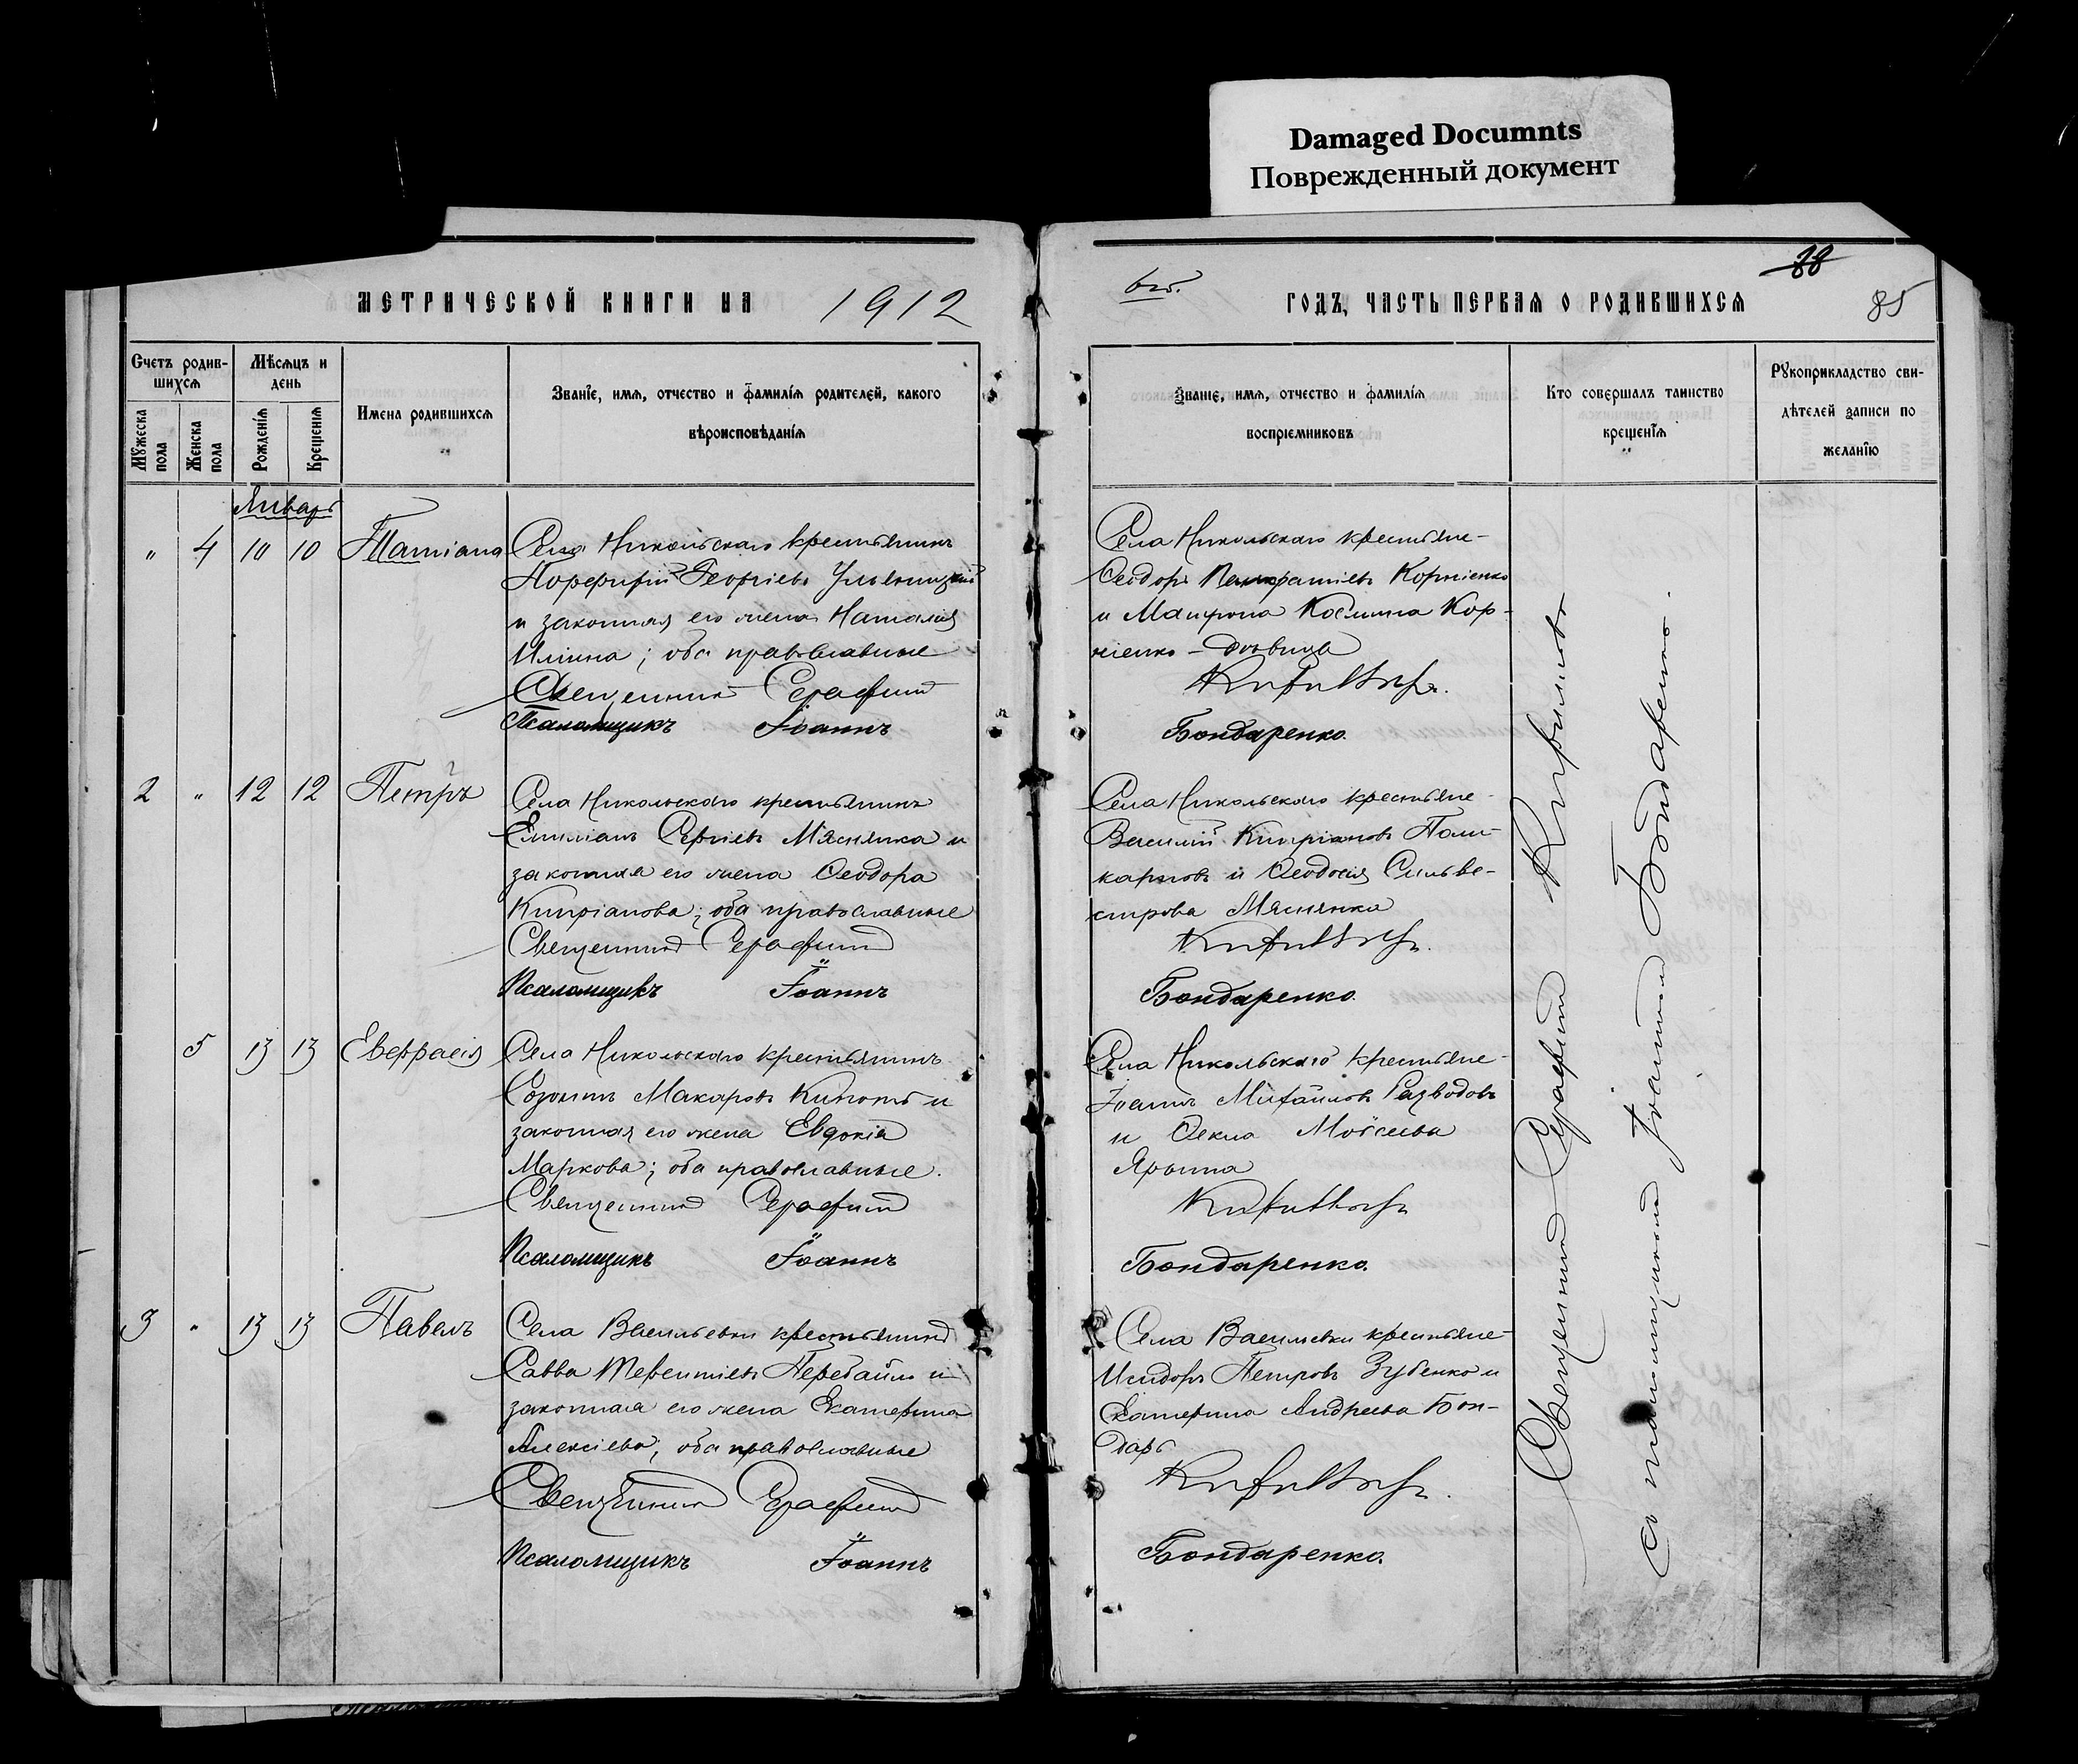 Damaged Documnts
Поврежденный документ
88
85
МЕТРИЧЕСКОЙ КНИГИ НА 1912
ГОДЪ, ЧАСТЬ ПЕРВАЯ О РОДИВШИХСЯ
Счетъ родив-
шихся
Мѣсяцъ и
день
Мужеска
пола
Женска
пола
Рожденія
Крещенія
Имена родившихся
Званіе, имя, отчество и фамилія родителей, какого
вѣроисповѣданія
Званіе, имя, отчество и фамилія
воспріемниковъ
Кто совершалъ таинство
крещенія
Рукоприкладство сви-
дѣтелей записи по
желанію
Январь
" 4 10 10 Татіана
Села Никольскаго крестьянинъ
Порфирій Георгіевъ
и законная его жена Наталія
Иліина; оба православные
Священникъ Серафимъ
Псаломщикъ Іоаннъ
Села Никольскаго крестьяне-
Ѳеодоръ Панкратіевъ Корніенко
и Матрона Косьмина Кор-
ніенко - дѣвица
Кирилловъ.
Бондаренко.
2 " 12 12 Петръ
Села Никольскаго крестьянинъ
Емиліанъ Сергіевъ Мяснянка и
законная его жена Ѳеодора
Кипріанова; оба православные
Священникъ Серафимъ
Псаломщикъ Іоаннъ
Села Никольскаго крестьяне-
Василій Кипріановъ Поли-
карповъ и Ѳеодосія Сильве-
строва Мяснянка
Кирилловъ.
Бондаренко.
5 13 13 Евфрасія
Села Никольскаго крестьянинъ
Созонтъ Макаровъ и
законная его жена Евдокія
Маркова; оба православные.
Священникъ Серафимъ
Псаломщикъ Іоаннъ
Села Никольскаго крестьяне-
Іоаннъ Михайловъ Разводовъ
и Ѳекла Моисеева
Ярынна
Кирилловъ
Бондаренко.
3 " 13 13 Павелъ
Села Васильевки крестьянинъ
Савва Терентіевъ Перебайло и
законная его жена Екатерина
Алексіева; оба православные
Священникъ Серафимъ
Псаломщикъ Іоаннъ
Села Васильевки крестьяне-
Исидоръ Петровъ Зубенко и
Екатерина Андреева Бон-
дарь
Кирилловъ.
Бондаренко.
Священникъ Серафимъ Кирилловъ
съ псаломщикомъ Іоанномъ Бондаренко.